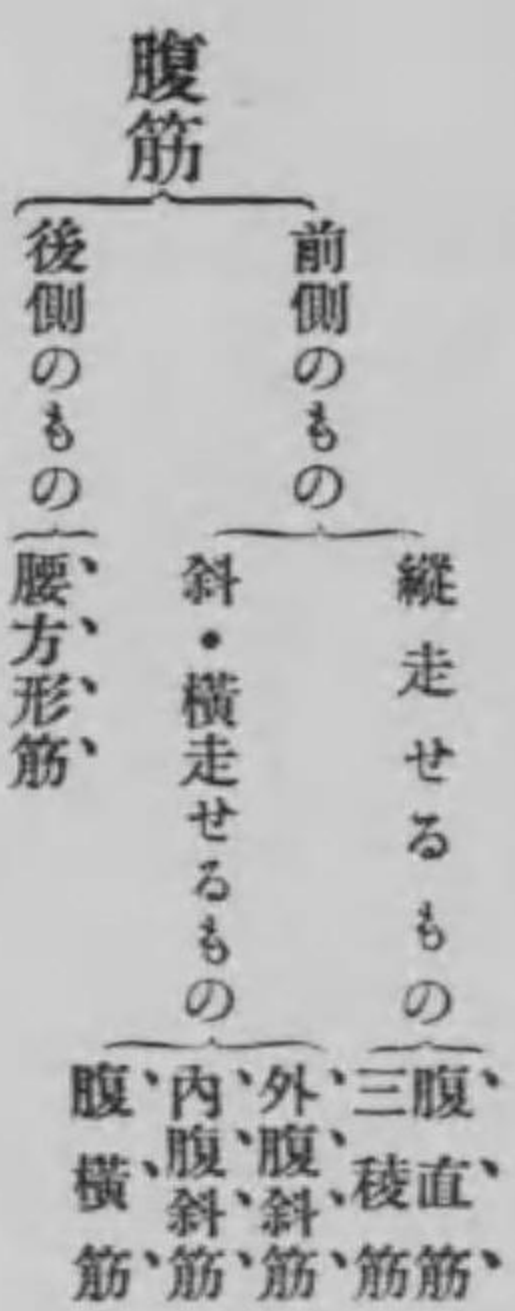 腹筋
前側のもの
縱走せるもの
腹直筋
三稜筋
斜・橫走せるもの
外腹斜筋
內腹斜筋
腹橫筋
後側のもの
腰方形筋